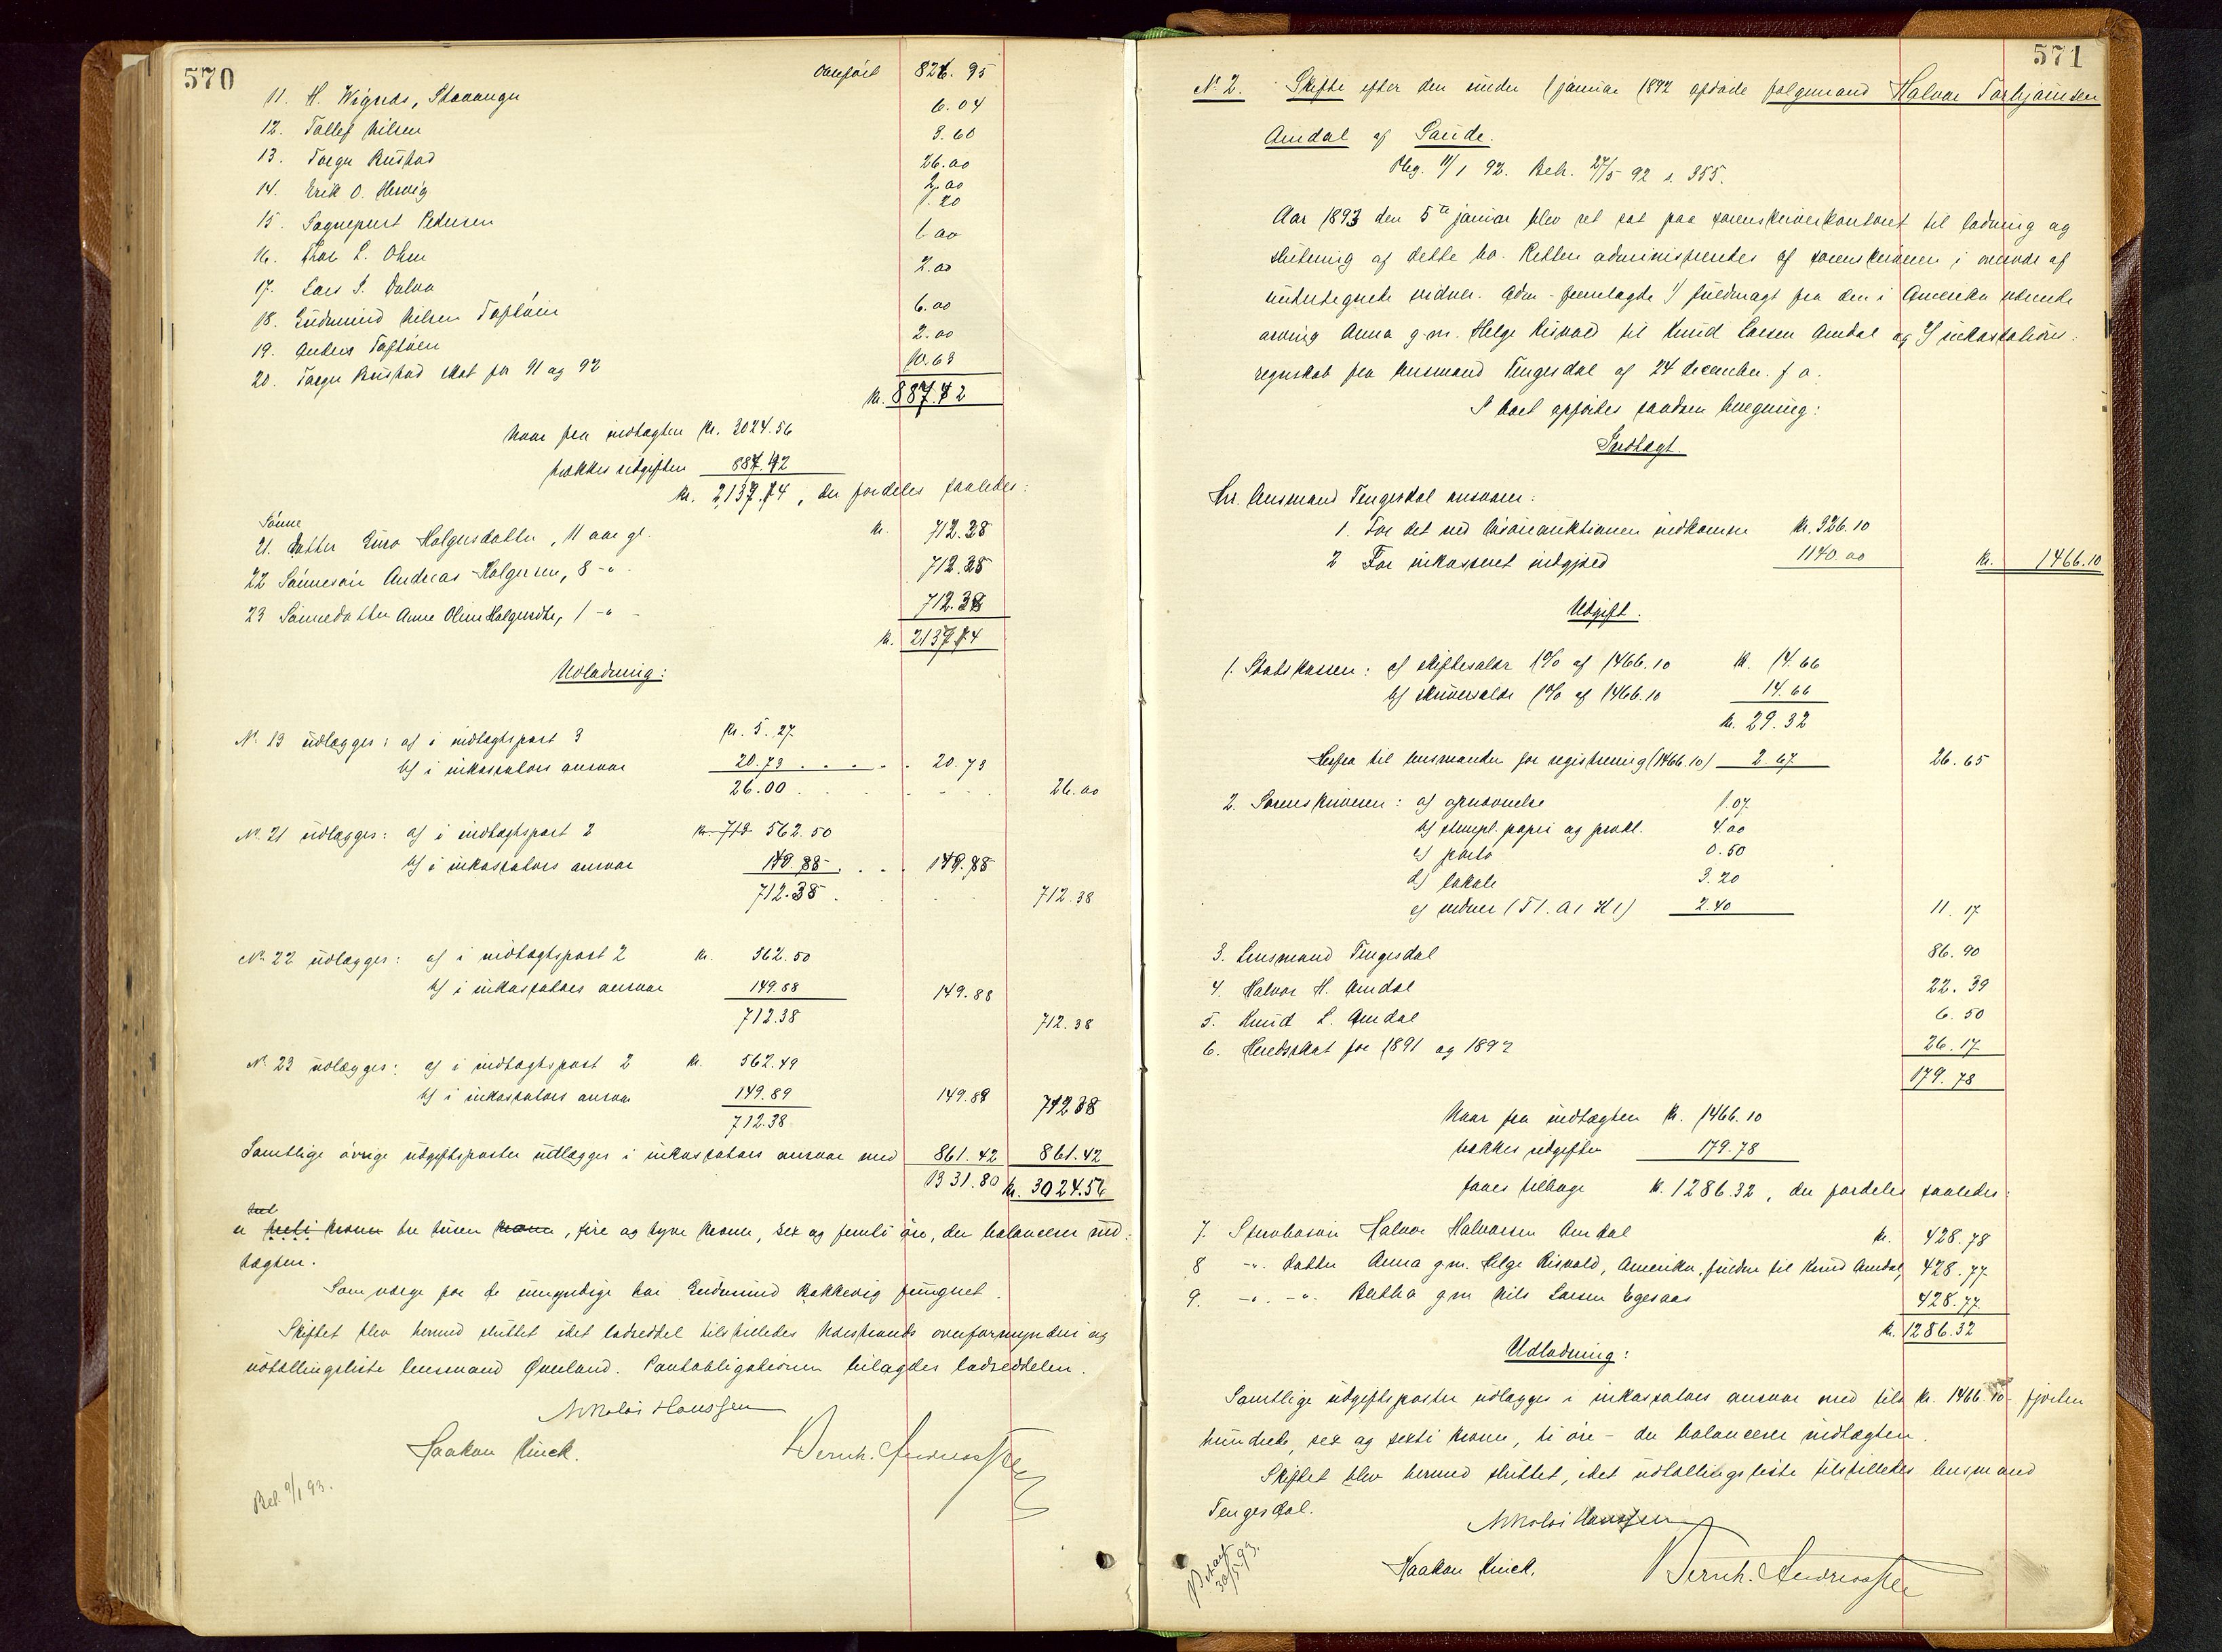 570
Overført 826.95
11. H. Wigreds, Stavanger 6.04
12. Tollef Nilsen 3.60
13. Torger Rustad 26.00
14. Erik O. Hervig 2.00
1.20
15. Sogneprest Pedersen 1.00
16. L. Olsen 2.00
17. Lars S.
18. Gudmund Nilsen Toftøen 6.00
19. Anders Toftøen 2.00
20. Torger Rustad skat for 91 og 92 10.63
Kr. 887.42
Naar fra indtægten Kr. 3024.56
trækkes udgiften 887.42
Kr. 2137.14, der fordeles saaledes:
Sønne
21. datter Guro Holgersdatter, 11 aar gl. Kr. 712.38
22 Sønnesøn Andreas Holgersen, 8 -"- 712.38
23 Sønnedatter Anne Oline Holgersdtr, 1 -"- 712.38
Kr. 2137.14
Udlodning:
No 13 udlægges: a) i indtægtspost 3 Kr. 5.27
b) i inkassators ansvar 20.73 . . . . . 20.73
26.00 . . . . . 26.00
No 21 udlægges: a) i indtægtspost 2 Kr. 712 562.50
b) i inkassators ansvar 149.88 . . . 149.88
712.38 . . . 712.38
No 22 udlægges: a) i indtægtspost 2 Kr. 562.50
b) i inkassators ansvar 149.88 149.88
712.38 712.38
No 23 udlægges: a) i indtægtspost 2 Kr. 562.49
b) i inkassators ansvar 149.89 149.89
712.38 712.38
Samtlige øvrige udgiftsposter udlægges i inkassators ansvar med 861.42 861.42
1331.80 Kr. 3024.56
er kroner tre tusen kroner, fire og tyve kroner, sex og femti øre, der balancerer ind-
tægten.
Som værge for de umyndige har Gudmund Bakkevig fungeret.
Skiftet blev hermed sluttet idet lodseddel tilstilledes Narstrands overformynderi og
udtællingsliste lensmand Øverland. Pantobligationen bilagdes lodseddelen.
Nikolai Hanssen
Haakon Kinck. Bernh. Andreassen
Bet. 9/1 93.
571
No 2. Skifte efter den under 1 januar 1892 afdøde følgemand Halvor Torbjørnsen
Amdal af Saude.
Reg. 11/1 92. Beh. 27/5 92 s. 355.
Aar 1893 den 5te januar blev ret sat paa sorenskriverkontoret til lodning og
slutning af dette bo. Retten administreredes af sorenskriveren i overvær af
undertegnede vidner. Adm. fremlagde 1) fuldmagt fra den i Amerika værende
arving Anna g.m. Helge Risvold til Knud Larsen Amdal og 2) inkassations-
regnskab fra lensmand Tengesdal af 24 december f. a.
I boet opførtes saadan beregning:
Indtægt.
Hr. lensmand Tengesdal ansvarer:
1. For det ved løsøreauktionen indkomne Kr. 326.10
2 For inkasseret indgjæld 1140.00 Kr. 1466.10
Udgift.
1. Statskassen: a) skiftesalær 1% af 1466.10 Kr. 14.66
b) skriversalær 1% af 1466.10 14.66
Kr. 29.32
Herfra til lensmanden for registrering (1466.10) 2.67 26.65
2. Sorenskriveren: a) opnævnelse 1.07
b) stempl. papir og prokl. 4.00
c) porto 0.50
d) lokale 3.20
e) vidner (T1. A1 K1) 2.40 11.17
3. Lensmand Tengesdal 86.90
4. Halvor H. Amdal 22.39
5. Knud L. Amdal 6.50
6. Herredsskat for 1891 og 1892 26.17
179.78
Naar fra indtægten Kr. 1466.10
trækkes udgiften 179.78
faaes tilbage Kr. 1286.32, der fordeles saaledes:
7. Sterbosøn Halvor Halvorsen Amdal Kr. 428.78
8 -"- datter Anna g.m. Helge Risvold, Amerika, fuldm. til Knud Amdal, 428.77
9. -"- -"- Bertha g.m Nils Larsen Egesaas 428.77
Kr. 1286.32
Udlodning:
Samtlige udgiftsposter udlægges i inkassators ansvar med tils Kr. 1466.10 - fjorten
hundrede, sex og sexti kroner, ti øre - der balancerer indtægten.
Skiftet blev hermed sluttet, idet udtællingsliste tilstilledes lensmand
Tengesdal.
Nikolai Hanssen
Haakon Kinck. Bernh. Andreassen
30/5 93.